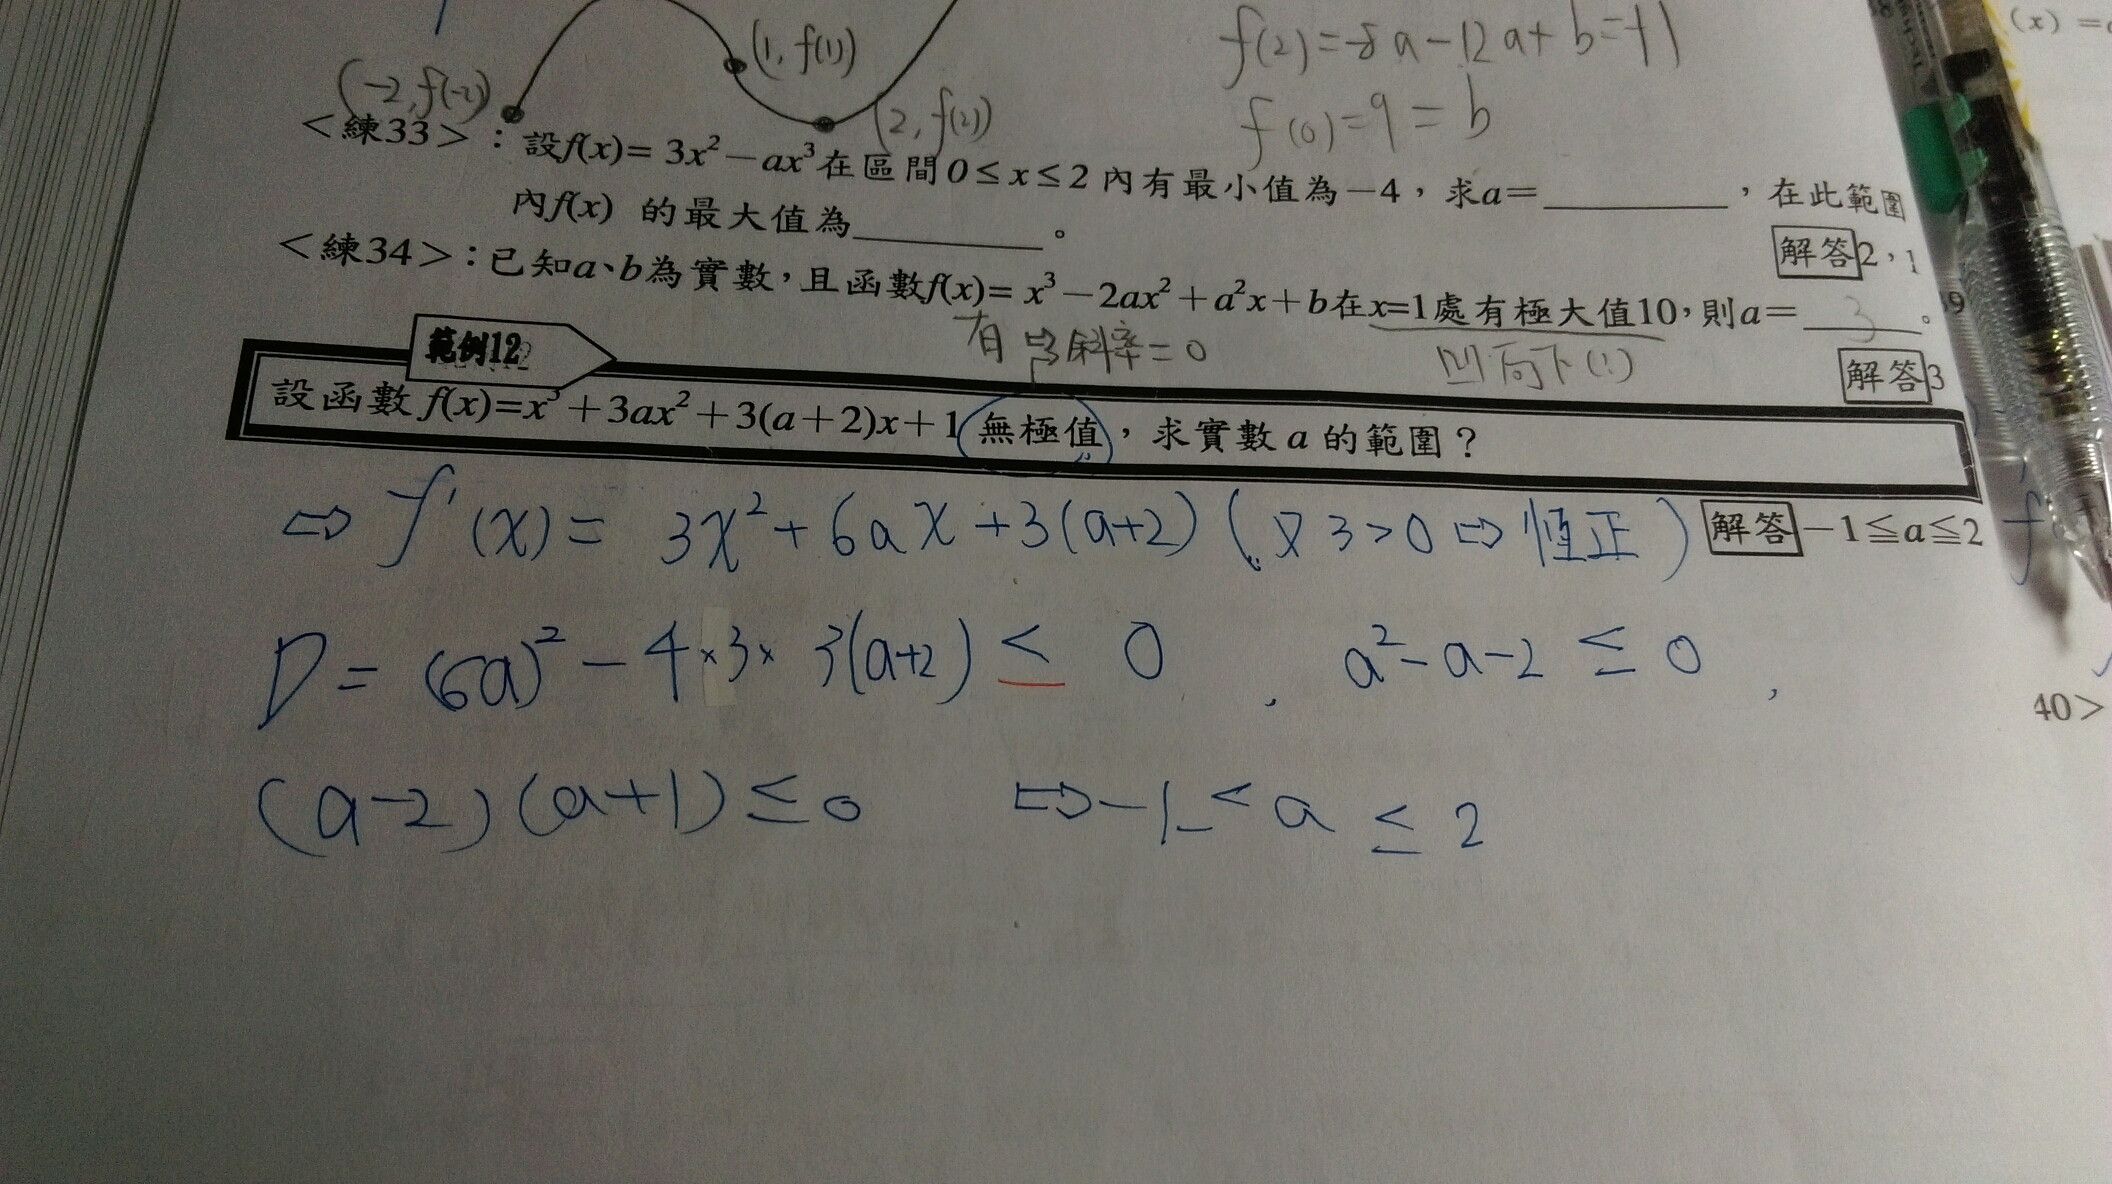 (1, f(1))
f(2)=-8a-12a+b=-11
(x) =
(-2, f(-2))
(2, f(2))
f(0)=9=b
＜練33＞：設f(x)= 3x²－ax³在區間0≤x≤2 內有最小值為－4，求a=________，在此範圍
內f(x) 的最大值為________。
解答2，1
＜練34＞：已知a、b為實數，且函數f(x)= x³－2ax²＋a²x＋b在x=1處有極大值10，則a=3。
有 斜率=0
凹向下(∵)
解答3
範例12
設函數 f(x)=x³＋3ax²＋3(a＋2)x＋1 無極值，求實數 a 的範圍？
⇨ f'(x) = 3x²+6ax+3(a+2) (又3>0 ⇨ 恆正)
解答－1≦a≦2
D = (6a)²-4×3×3(a+2) ≤ 0 , a²-a-2 ≤ 0 ,
40>
(a-2)(a+1)≤0 ⇨ -1 ≤ a ≤ 2